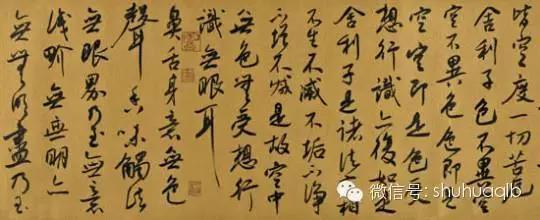 皆空度一切苦厄
舍利子色不異空
空不異色色即是
空空即是色受
想行識亦復如是
舍利子是諸法空相
不生不滅不垢不淨
不增不減是故空中
無色無受想行
識無眼耳
鼻舌身意無色
聲香味觸法
無眼界乃至無意
識界無無明亦
無無明盡乃至
微信号: shuhuaqlb